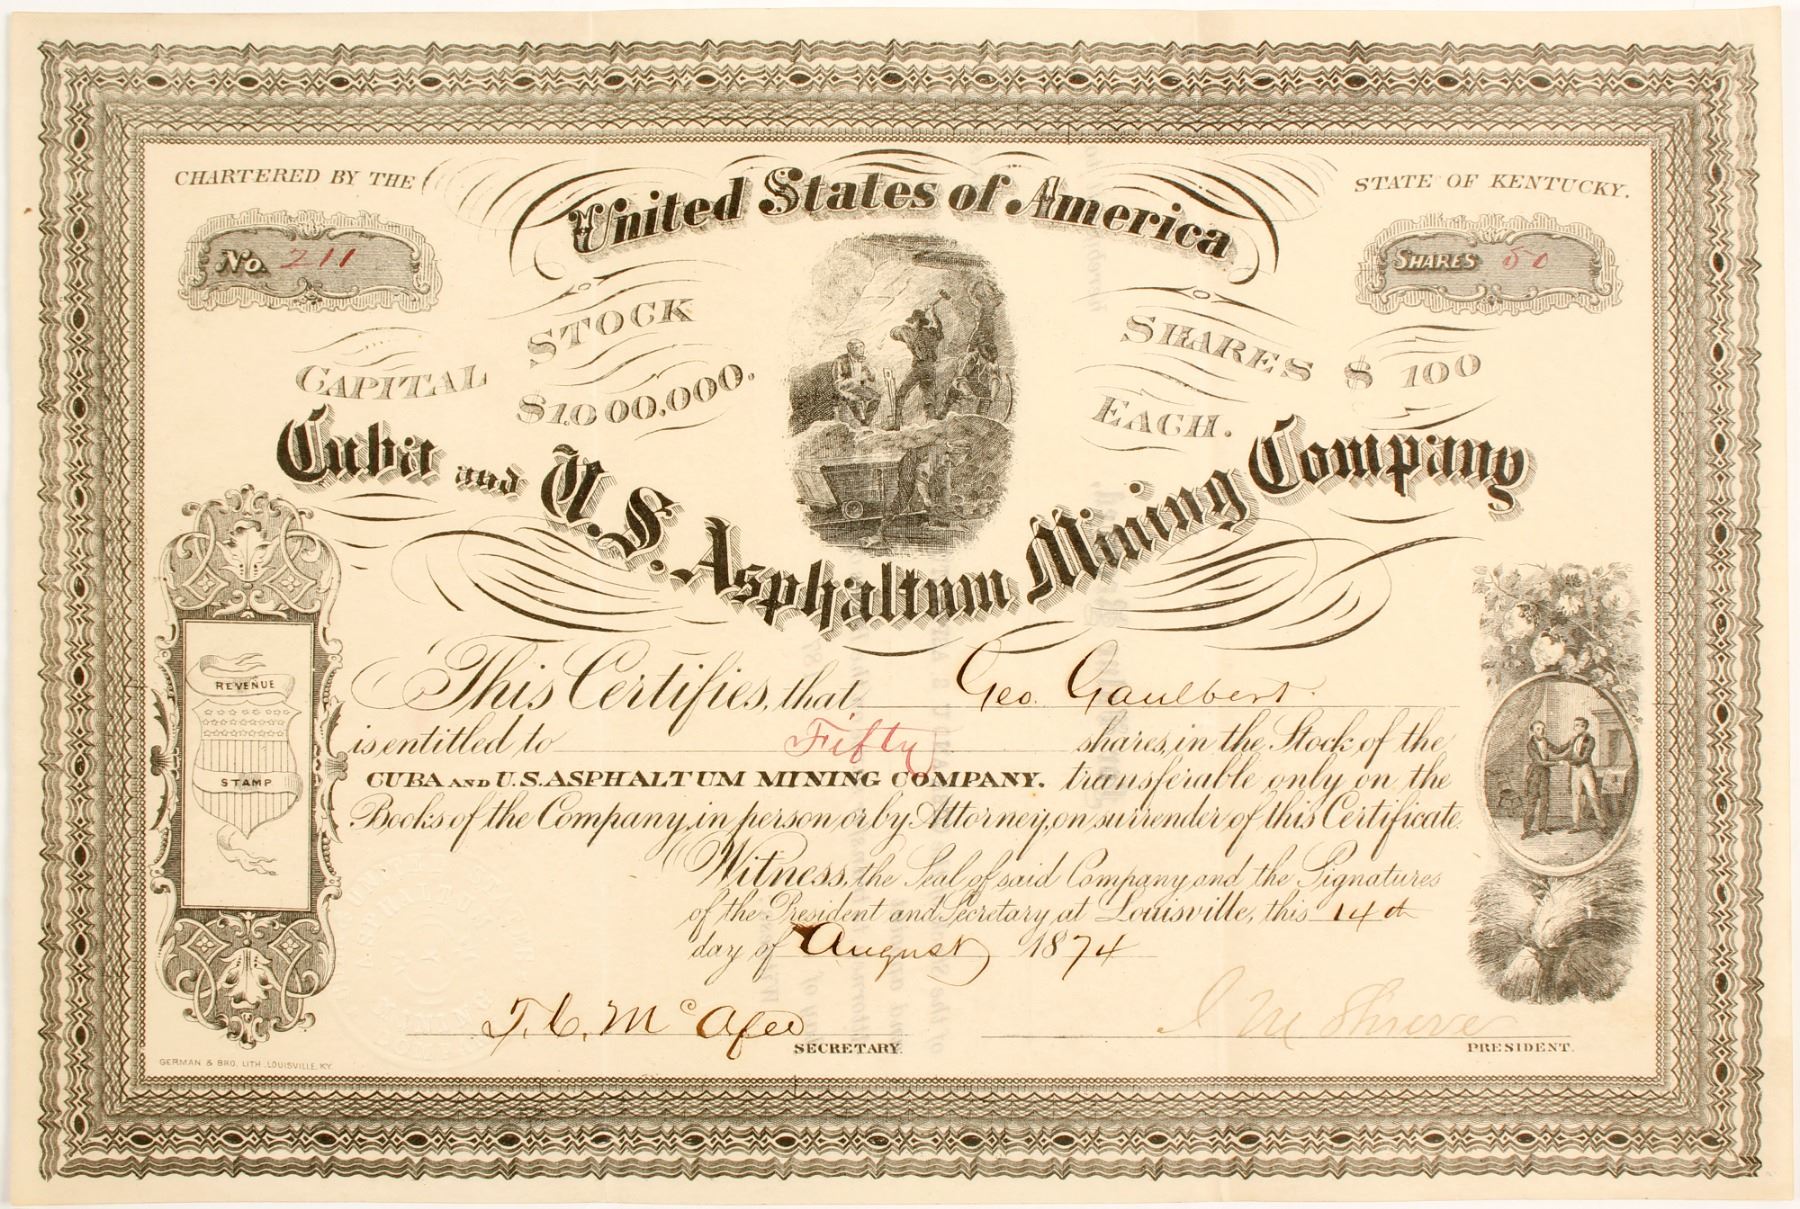 CHARTERED BY THE
STATE OF KENTUCKY.
United States of America
No. 211
SHARES 50
CAPITAL STOCK $1,000,000.
SHARES $100 EACH.
Cuba and U.S. Asphaltum Mining Company
This Certifies, that Geo. Gaulbert
is entitled to Fifty shares, in the Stock of the
CUBA AND U.S. ASPHALTUM MINING COMPANY. transferable only on the
Books of the Company, in person, or by Attorney, on surrender of this Certificate.
Witness, the Seal of said Company, and the Signatures
of the President and Secretary, at Louisville, this 14th
day of August 1874
REVENUE
STAMP
T. C. McAfee
SECRETARY.
Shreve
PRESIDENT.
GERMAN & BRO. LITH. LOUISVILLE, KY